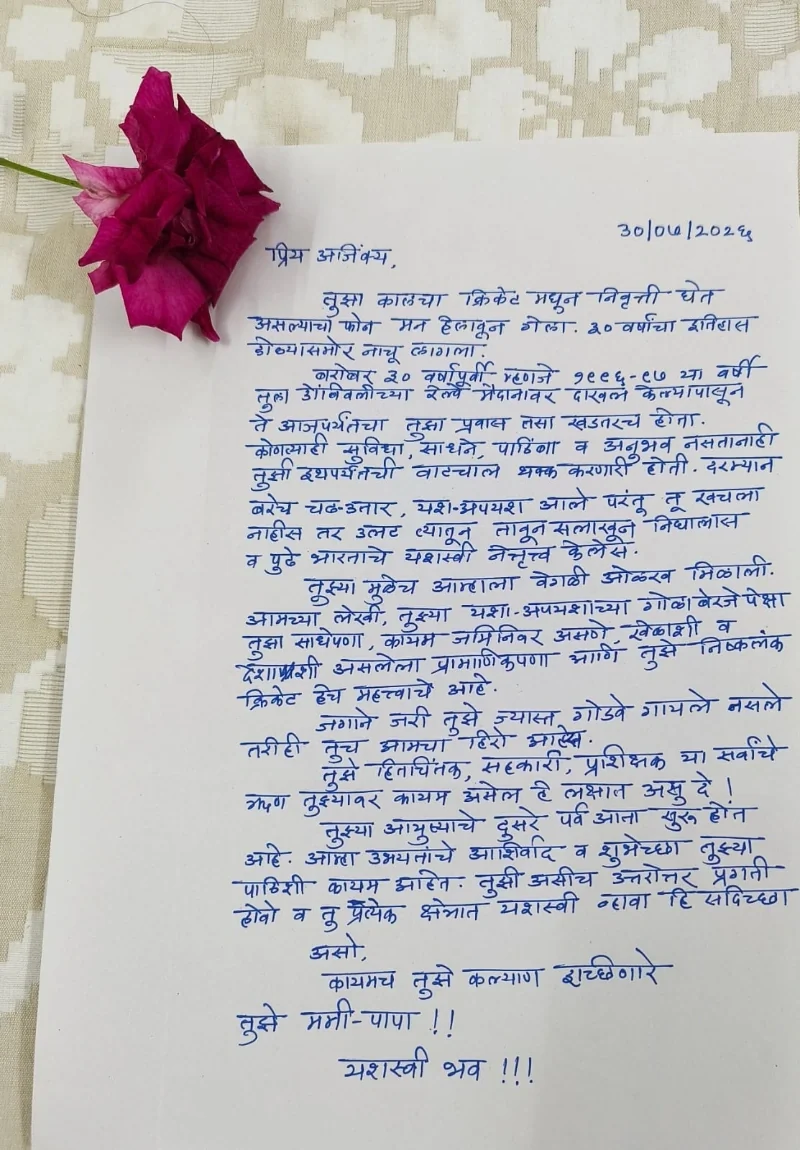 ३०/०७/२०२६
प्रिय अजिंक्य,
तुझा कालचा क्रिकेट मधुन निवृत्ती घेत
असल्याचा फोन मन हेलावून गेला. ३० वर्षांचा इतिहास
डोळ्यासमोर नाचू लागला.
बरोबर ३० वर्षापूर्वी म्हणजे १९९६-९७ या वर्षी
तुला डोंबिवलीच्या रेल्वे मैदानावर दाखल केल्यापासून
ते आजपर्यंतचा तुझा प्रवास तसा खडतरच होता.
कोणत्याही सुविधा, साधने, पाठिंबा व अनुभव नसतानाही
तुझी इथपर्यंतची वाटचाल थक्क करणारी होती. दरम्यान
बरेच चढ-उतार, यश-अपयश आले परंतु तू खचला
नाहीस तर उलट त्यातून तावून सलाखून निघालास
व पुढे भारताचे यशस्वी नेत्तृत्व केलेस.
तुझ्या मुळेच आम्हाला वेगळी ओळख मिळाली.
आमच्या लेखी, तुझ्या यशा-अपयशाच्या गोळाबेरजे पेक्षा
तुझा साधेपणा, कायम जमिनिवर असणे, खेळाशी व
देशाशी असलेला प्रामाणिकपणा आणि तुझे निष्कलंक
क्रिकेट हेच महत्त्वाचे आहे.
जगाने जरी तुझे ज्यास्त गोडवे गायले नसले
तरीही तुच आमचा हिरो आहेस.
तुझे हितचिंतक, सहकारी, प्रशिक्षक या सर्वांचे
ऋण तुझ्यावर कायम असेल हे लक्षात असु दे!
तुझ्या आयुष्याचे दुसरे पर्व आता सुरू होत
आहे. आम्हा उभयतांचे आशिर्वाद व शुभेच्छा तुझ्या
पाठिशी कायम आहेत. तुझी अशीच उत्तरोत्तर प्रगती
होवो व तु प्रत्येक क्षेत्रात यशस्वी व्हावा हि सदिच्छा
असो,
कायमच तुझे कल्याण इच्छिणारे
तुझे ममी-पापा !!
यशस्वी भव !!!